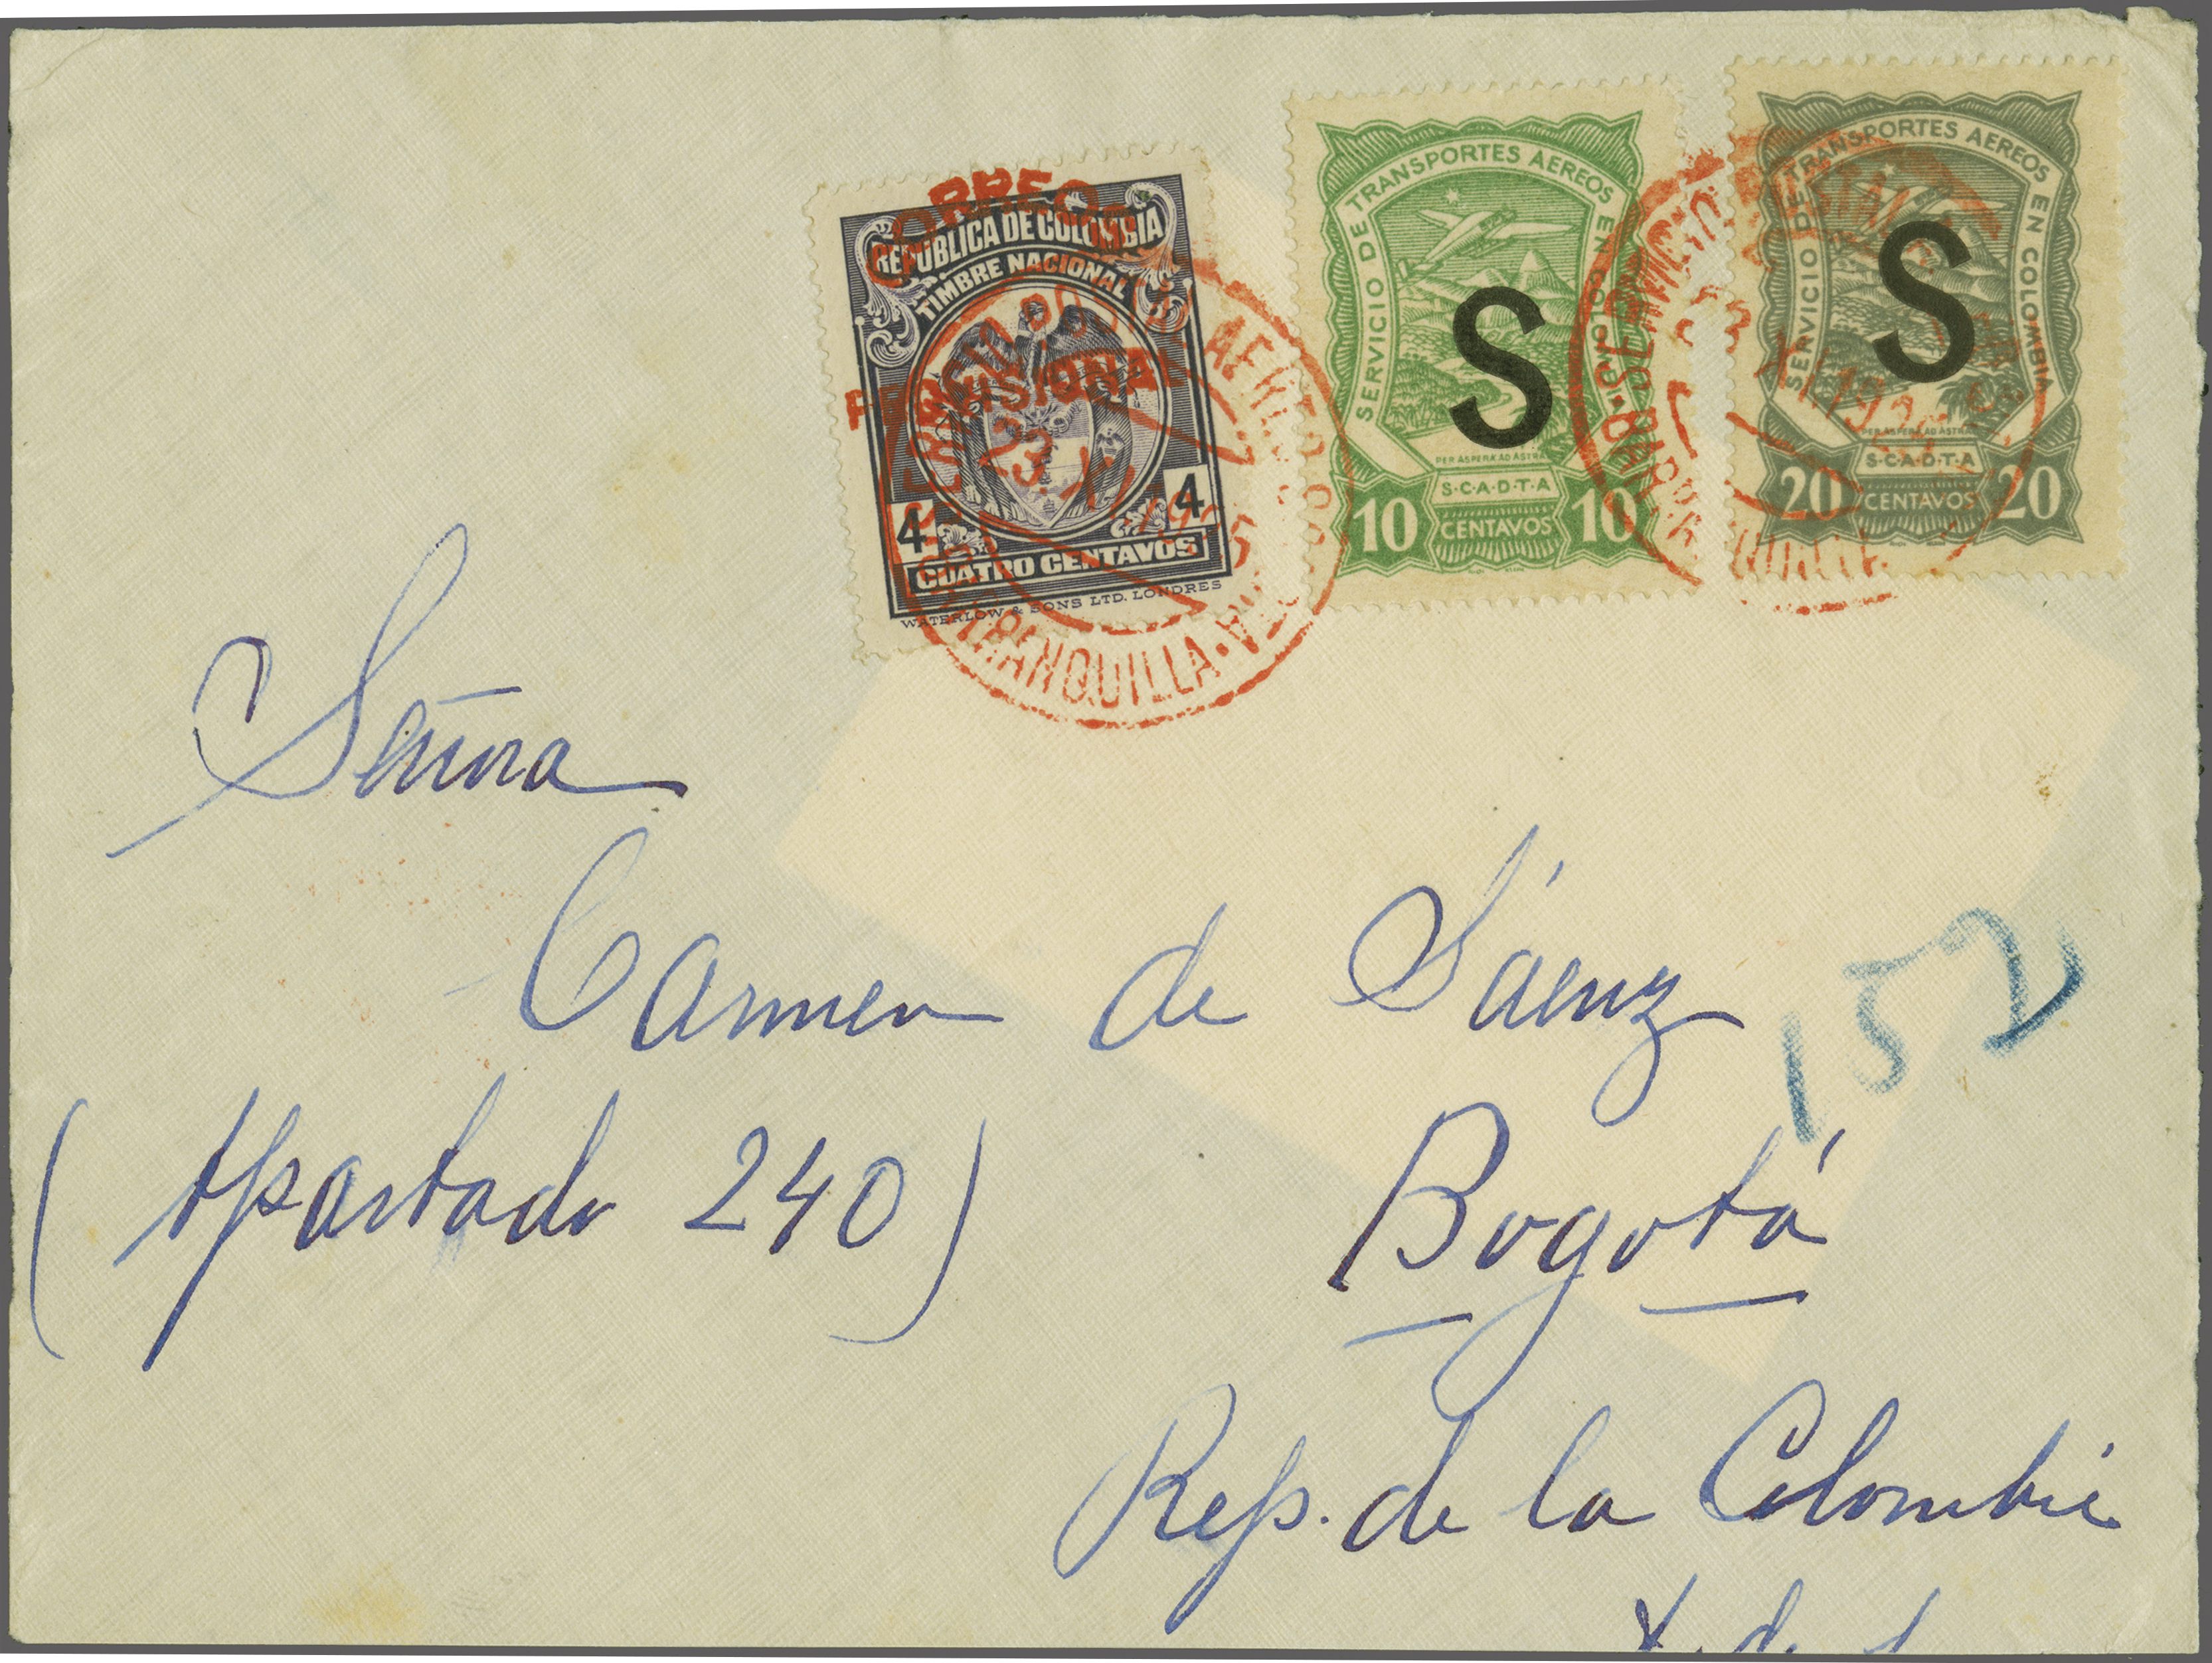 CORREO
PROVISIONAL
REPÚBLICA DE COLOMBIA
TIMBRE NACIONAL
4 4
CUATRO CENTAVOS
WATERLOW & SONS LTD. LONDRES
23. XI 1925
BARRANQUILLA
SERVICIO DE TRANSPORTES AEREOS EN COLOMBIA
S
PER ASPERA AD ASTRA
S·C·A·D·T·A
10 CENTAVOS 10
SERVICIO DE TRANSPORTES AEREOS EN COLOMBIA
S
PER ASPERA AD ASTRA
S·C·A·D·T·A
20 CENTAVOS 20
SERVICIO
Señora
Carmen de Sáenz
152
(Apartado 240) Bogotá
Rep. de la Colombie